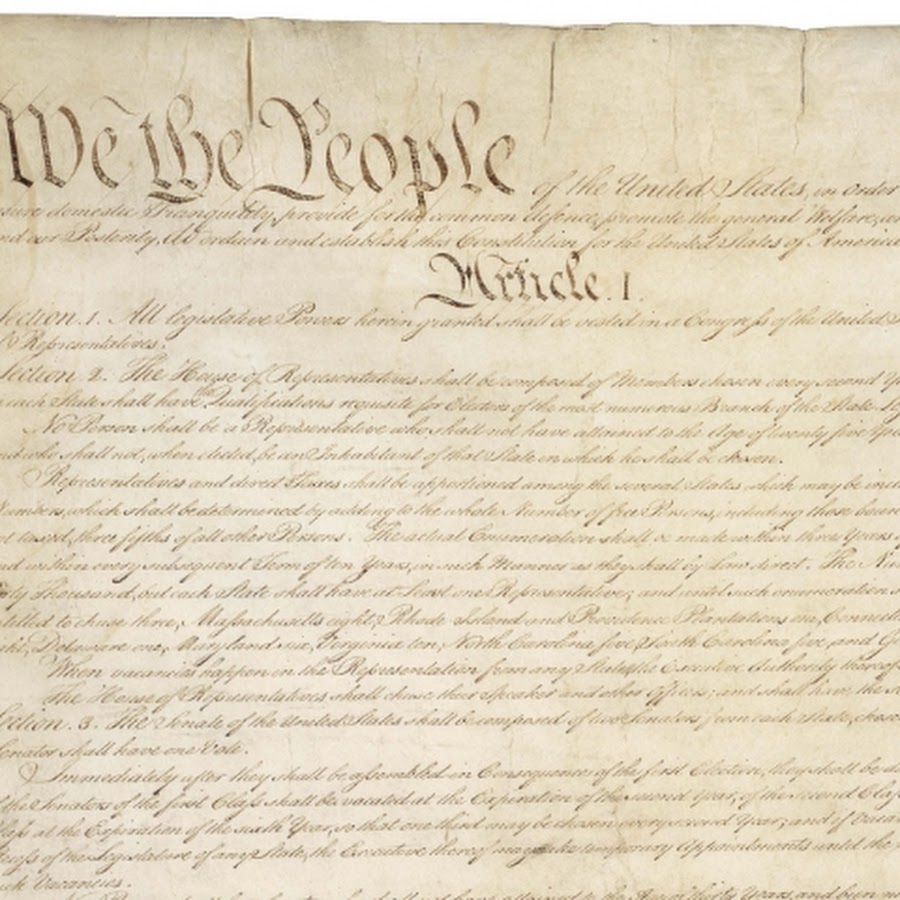 We the People of the United States, in order
sure domestic Tranquility, provide for the common defence, promote the general Welfare, an
nd our Posterity, do ordain and establish this Constitution for the United States of America
Article. I.
Section. 1. All legislative Powers herein granted shall be vested in a Congress of the United S
f Representatives.
Section. 2. The House of Representatives shall be composed of Members chosen every second Ye
each State shall have the Qualifications requisite for Electors of the most numerous Branch of the State Leg
No Person shall be a Representative who shall not have attained to the Age of twenty five Year
nd who shall not, when elected, be an Inhabitant of that State in which he shall be chosen.
Representatives and direct Taxes shall be apportioned among the several States which may be inclu
Numbers, which shall be determined by adding to the whole Number of free Persons, including those boun
ot taxed, three fifths of all other Persons. The actual Enumeration shall be made within three Years
nd within every subsequent Term of ten Years, in such Manner as they shall by Law direct. The Nu
ty Thousand, but each State shall have at Least one Representative; and until such enumeration s
titled to chuse three, Massachusetts eight, Rhode Island and Providence Plantations one, Connecti
ght, Delaware one, Maryland six, Virginia ten, North Carolina five, South Carolina five, and Ge
When vacancies happen in the Representation from any State, the Executive Authority thereof
The House of Representatives shall chuse their Speaker and other Officers; and shall have the so
Section. 3. The Senate of the United States shall be composed of two Senators from each State, chose
Senator shall have one Vote.
Immediately after they shall be assembled in Consequence of the first Election, they shall be di
f the Senators of the first Class shall be vacated at the Expiration of the second Year, of the second Clas
lass at the Expiration of the sixth Year, so that one third may be chosen every second Year; and if vacan
ecess of the Legislature of any State, the Executive thereof may make temporary Appointments until the n
uch Vacancies.
No Person shall be a Senator who shall not have attained to the Age of thirty Years, and been n